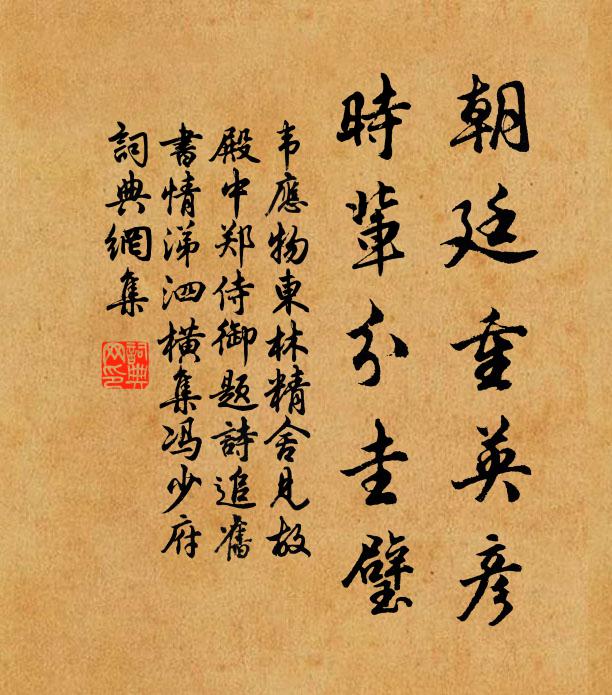 朝廷重英彥
時輩分圭璧
韦應物東林精舍見故
殿中郑侍御題詩追舊
書情涕泗橫集冯少府
詞典網集
詞典
网印